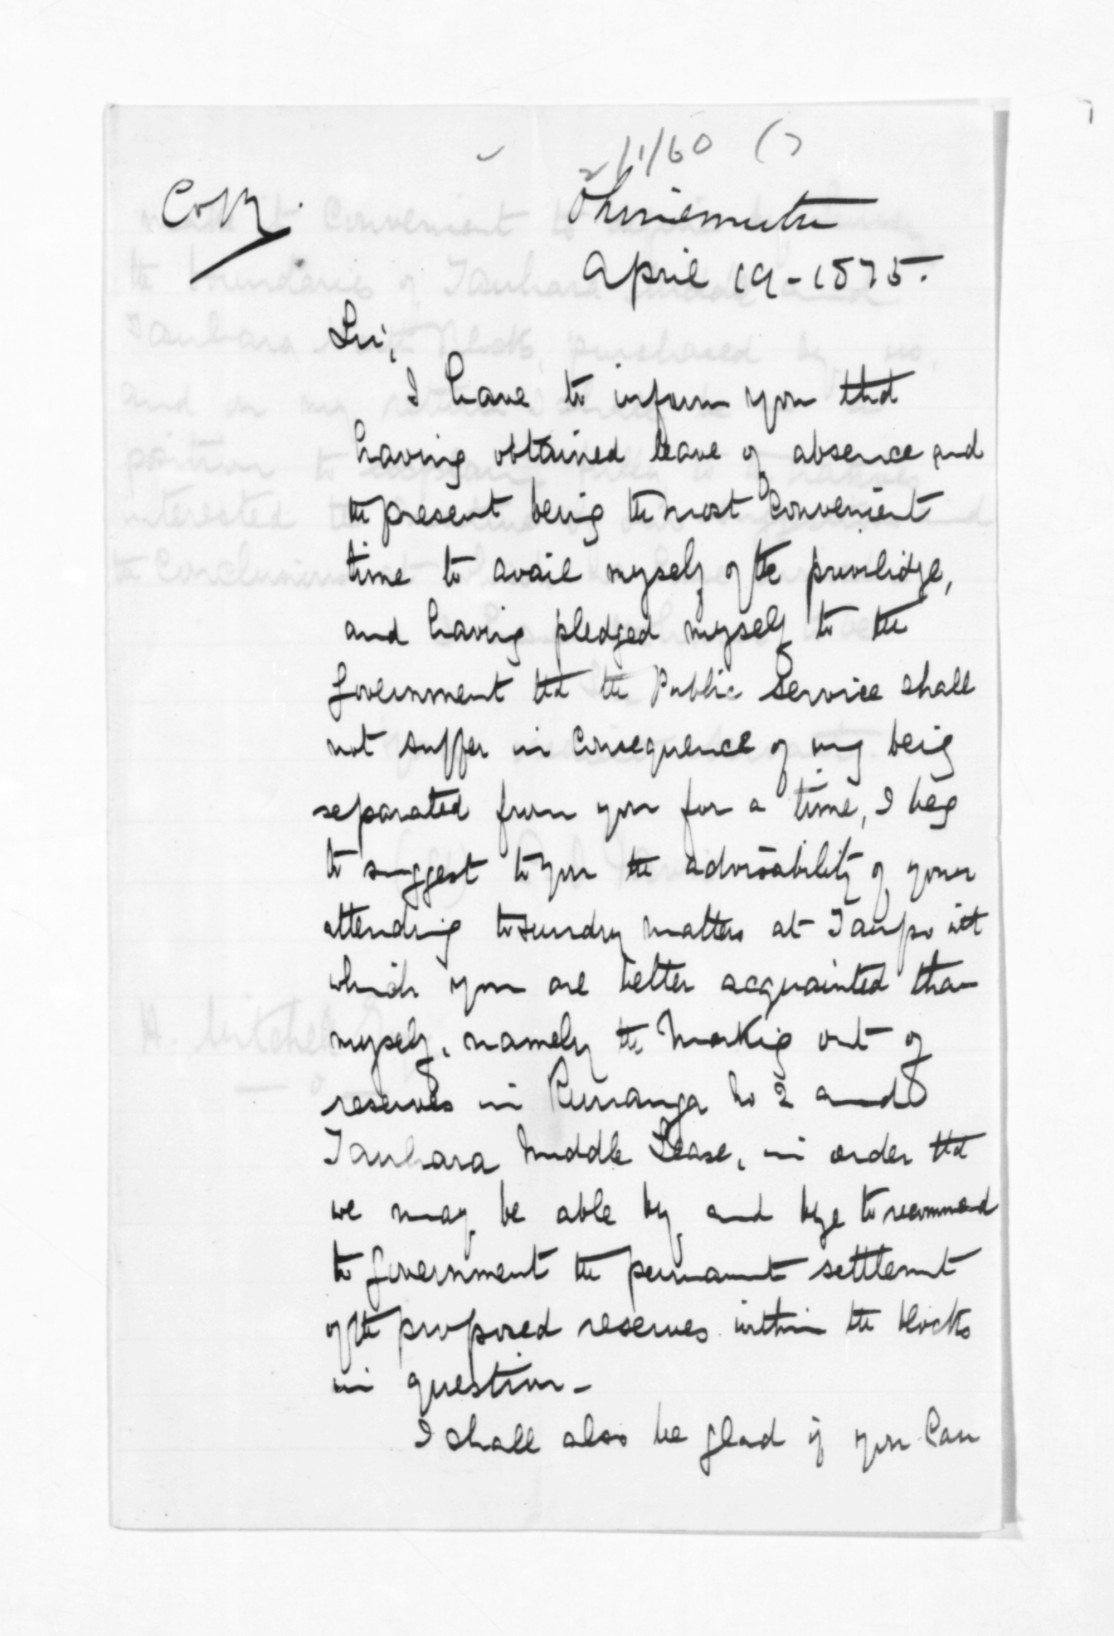 Copy.
Ohinemutu
April 19 - 1875.
Sir,
I have to inform you that
having obtained leave of absence and
the present being the most Convenient
time to avail myself of the privilidge,
and having pledged myself to the
Government that the Public Service shall
not suffer in Consequence of my being
separated from you for a time, I beg
to suggest to you the advisability of your
attending to sundry matters at Taupo with
which you are better acquainted than
myself, namely the Marking out of
reserves in Runanga No 2 and
Tauhara Middle Lease, in order that
we may be able by and bye to recommend
to Government the permanent settlement
of the proposed reserves within the blocks
in question -
I shall also be glad if you Can